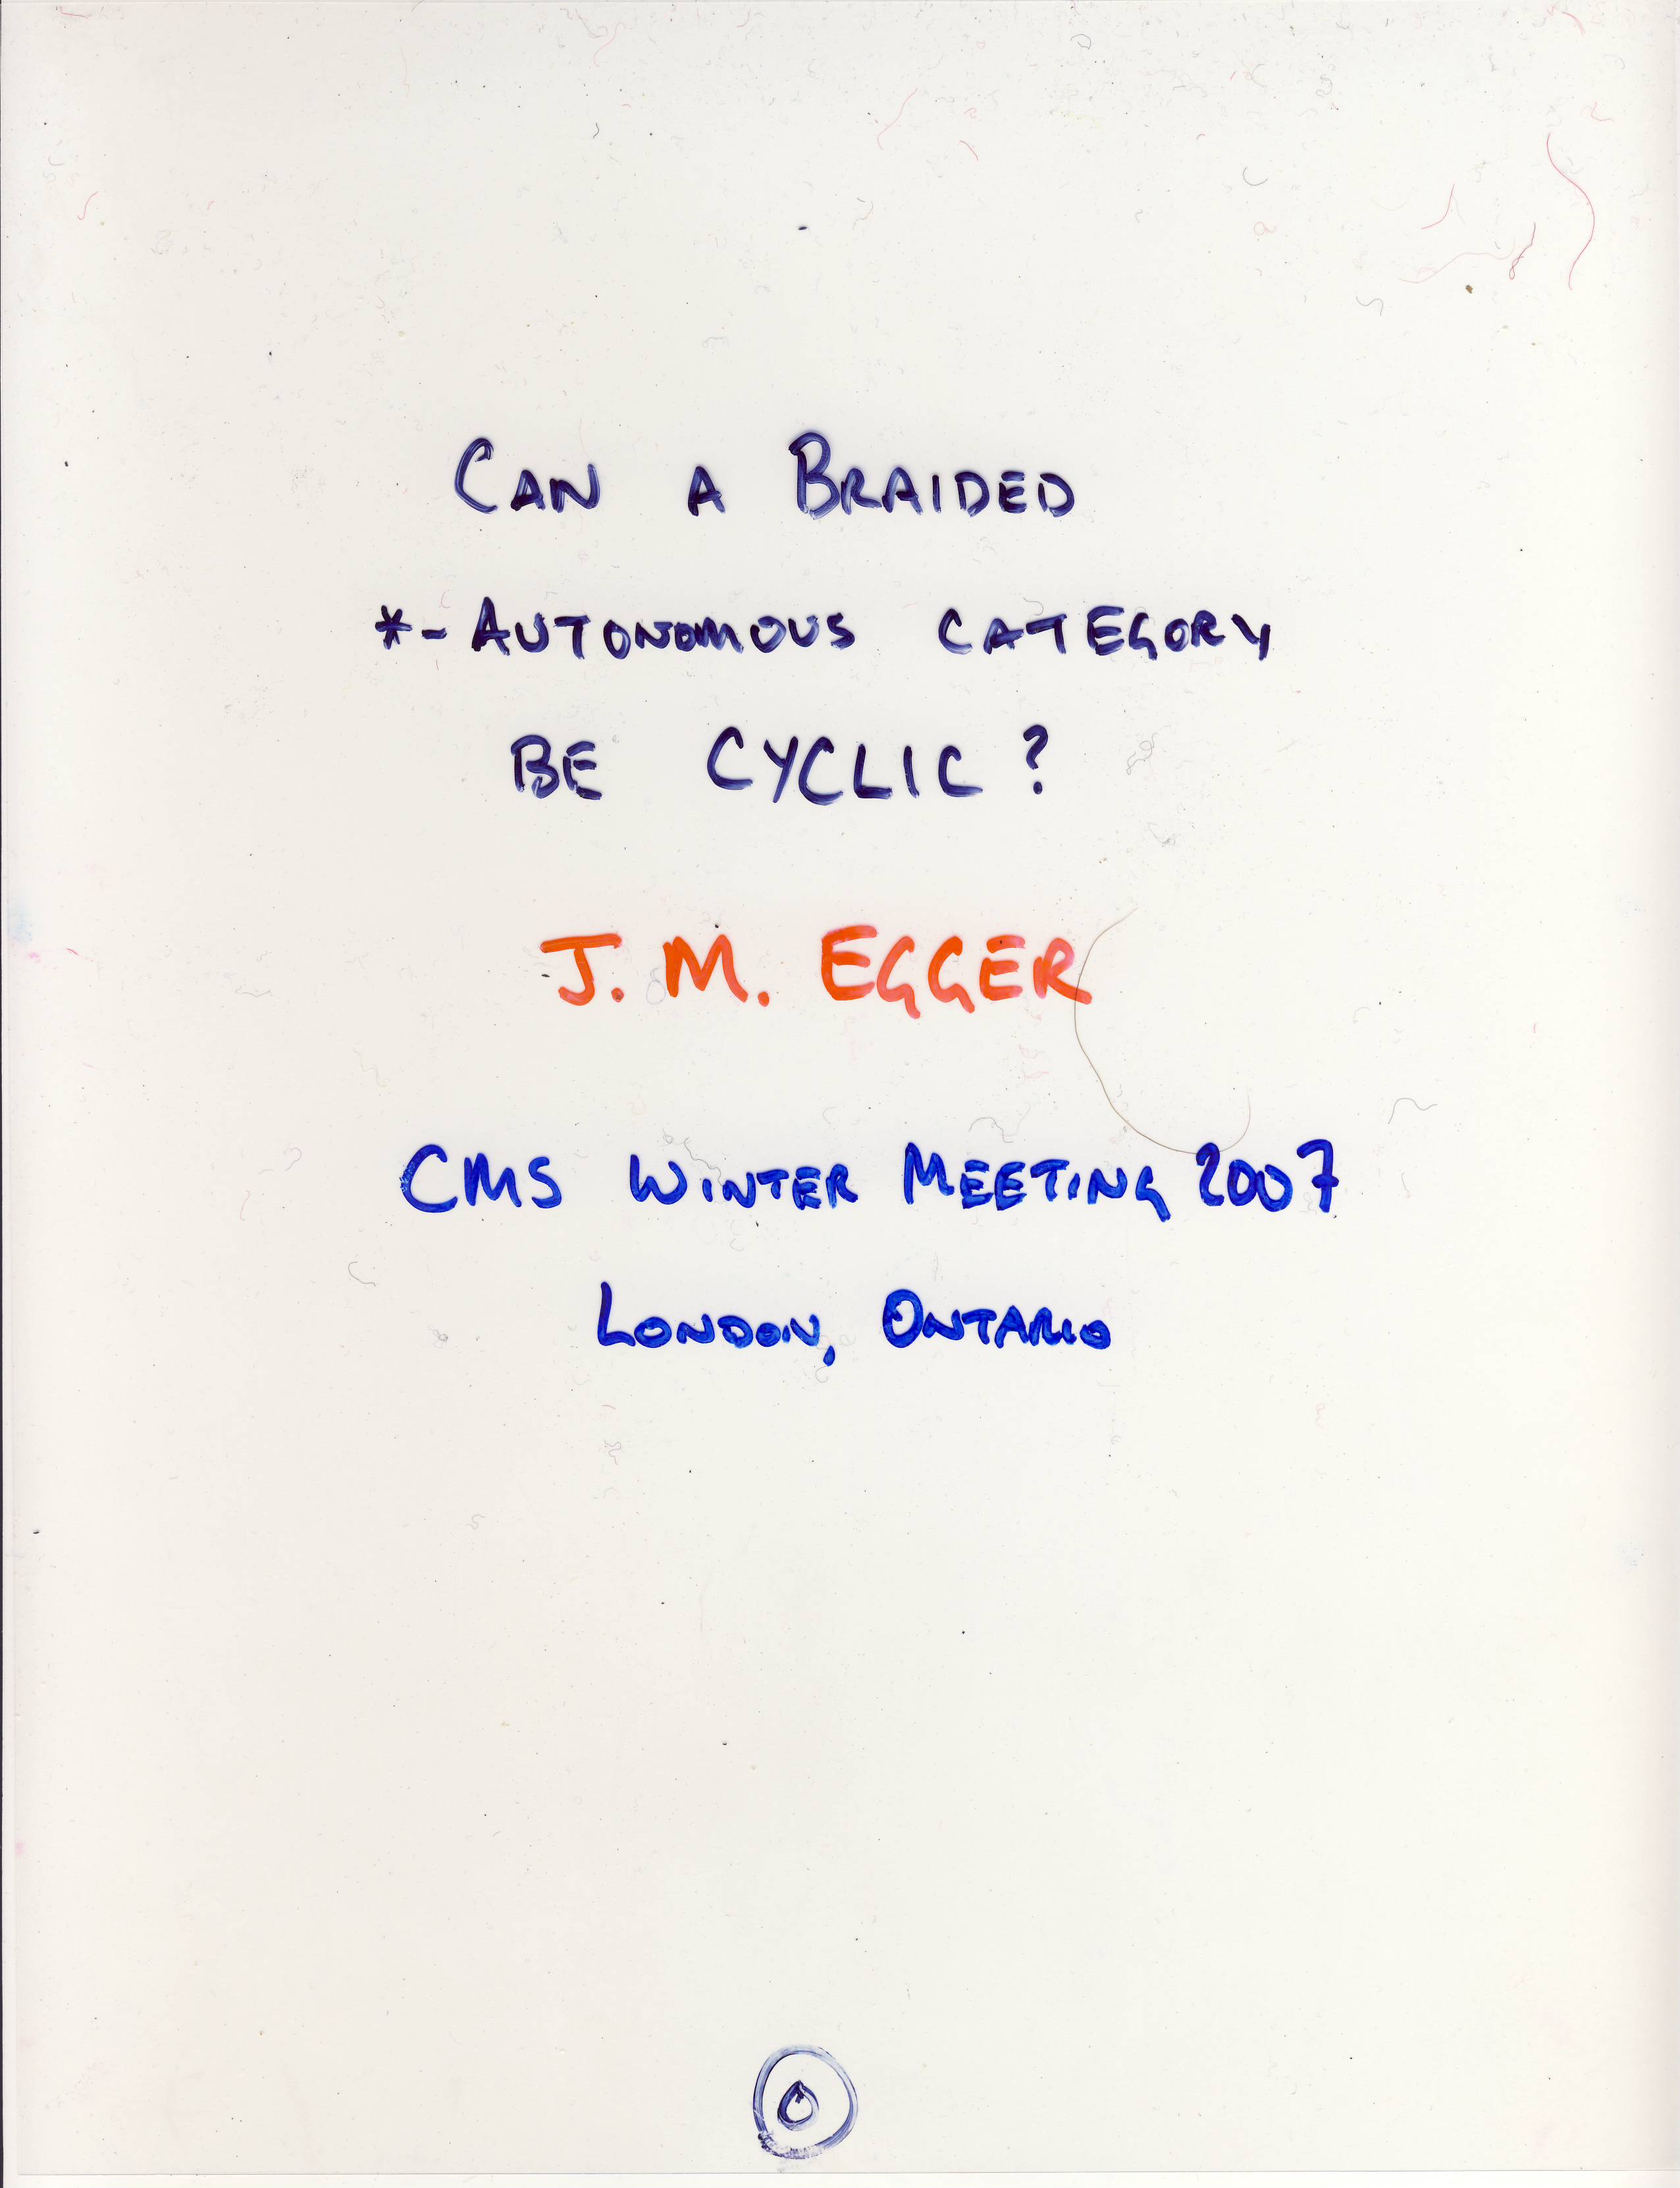 CAN A BRAIDED
*-AUTONOMOUS CATEGORY
BE CYCLIC?
J. M. EGGER
CMS WINTER MEETING 2007
LONDON, ONTARIO
0